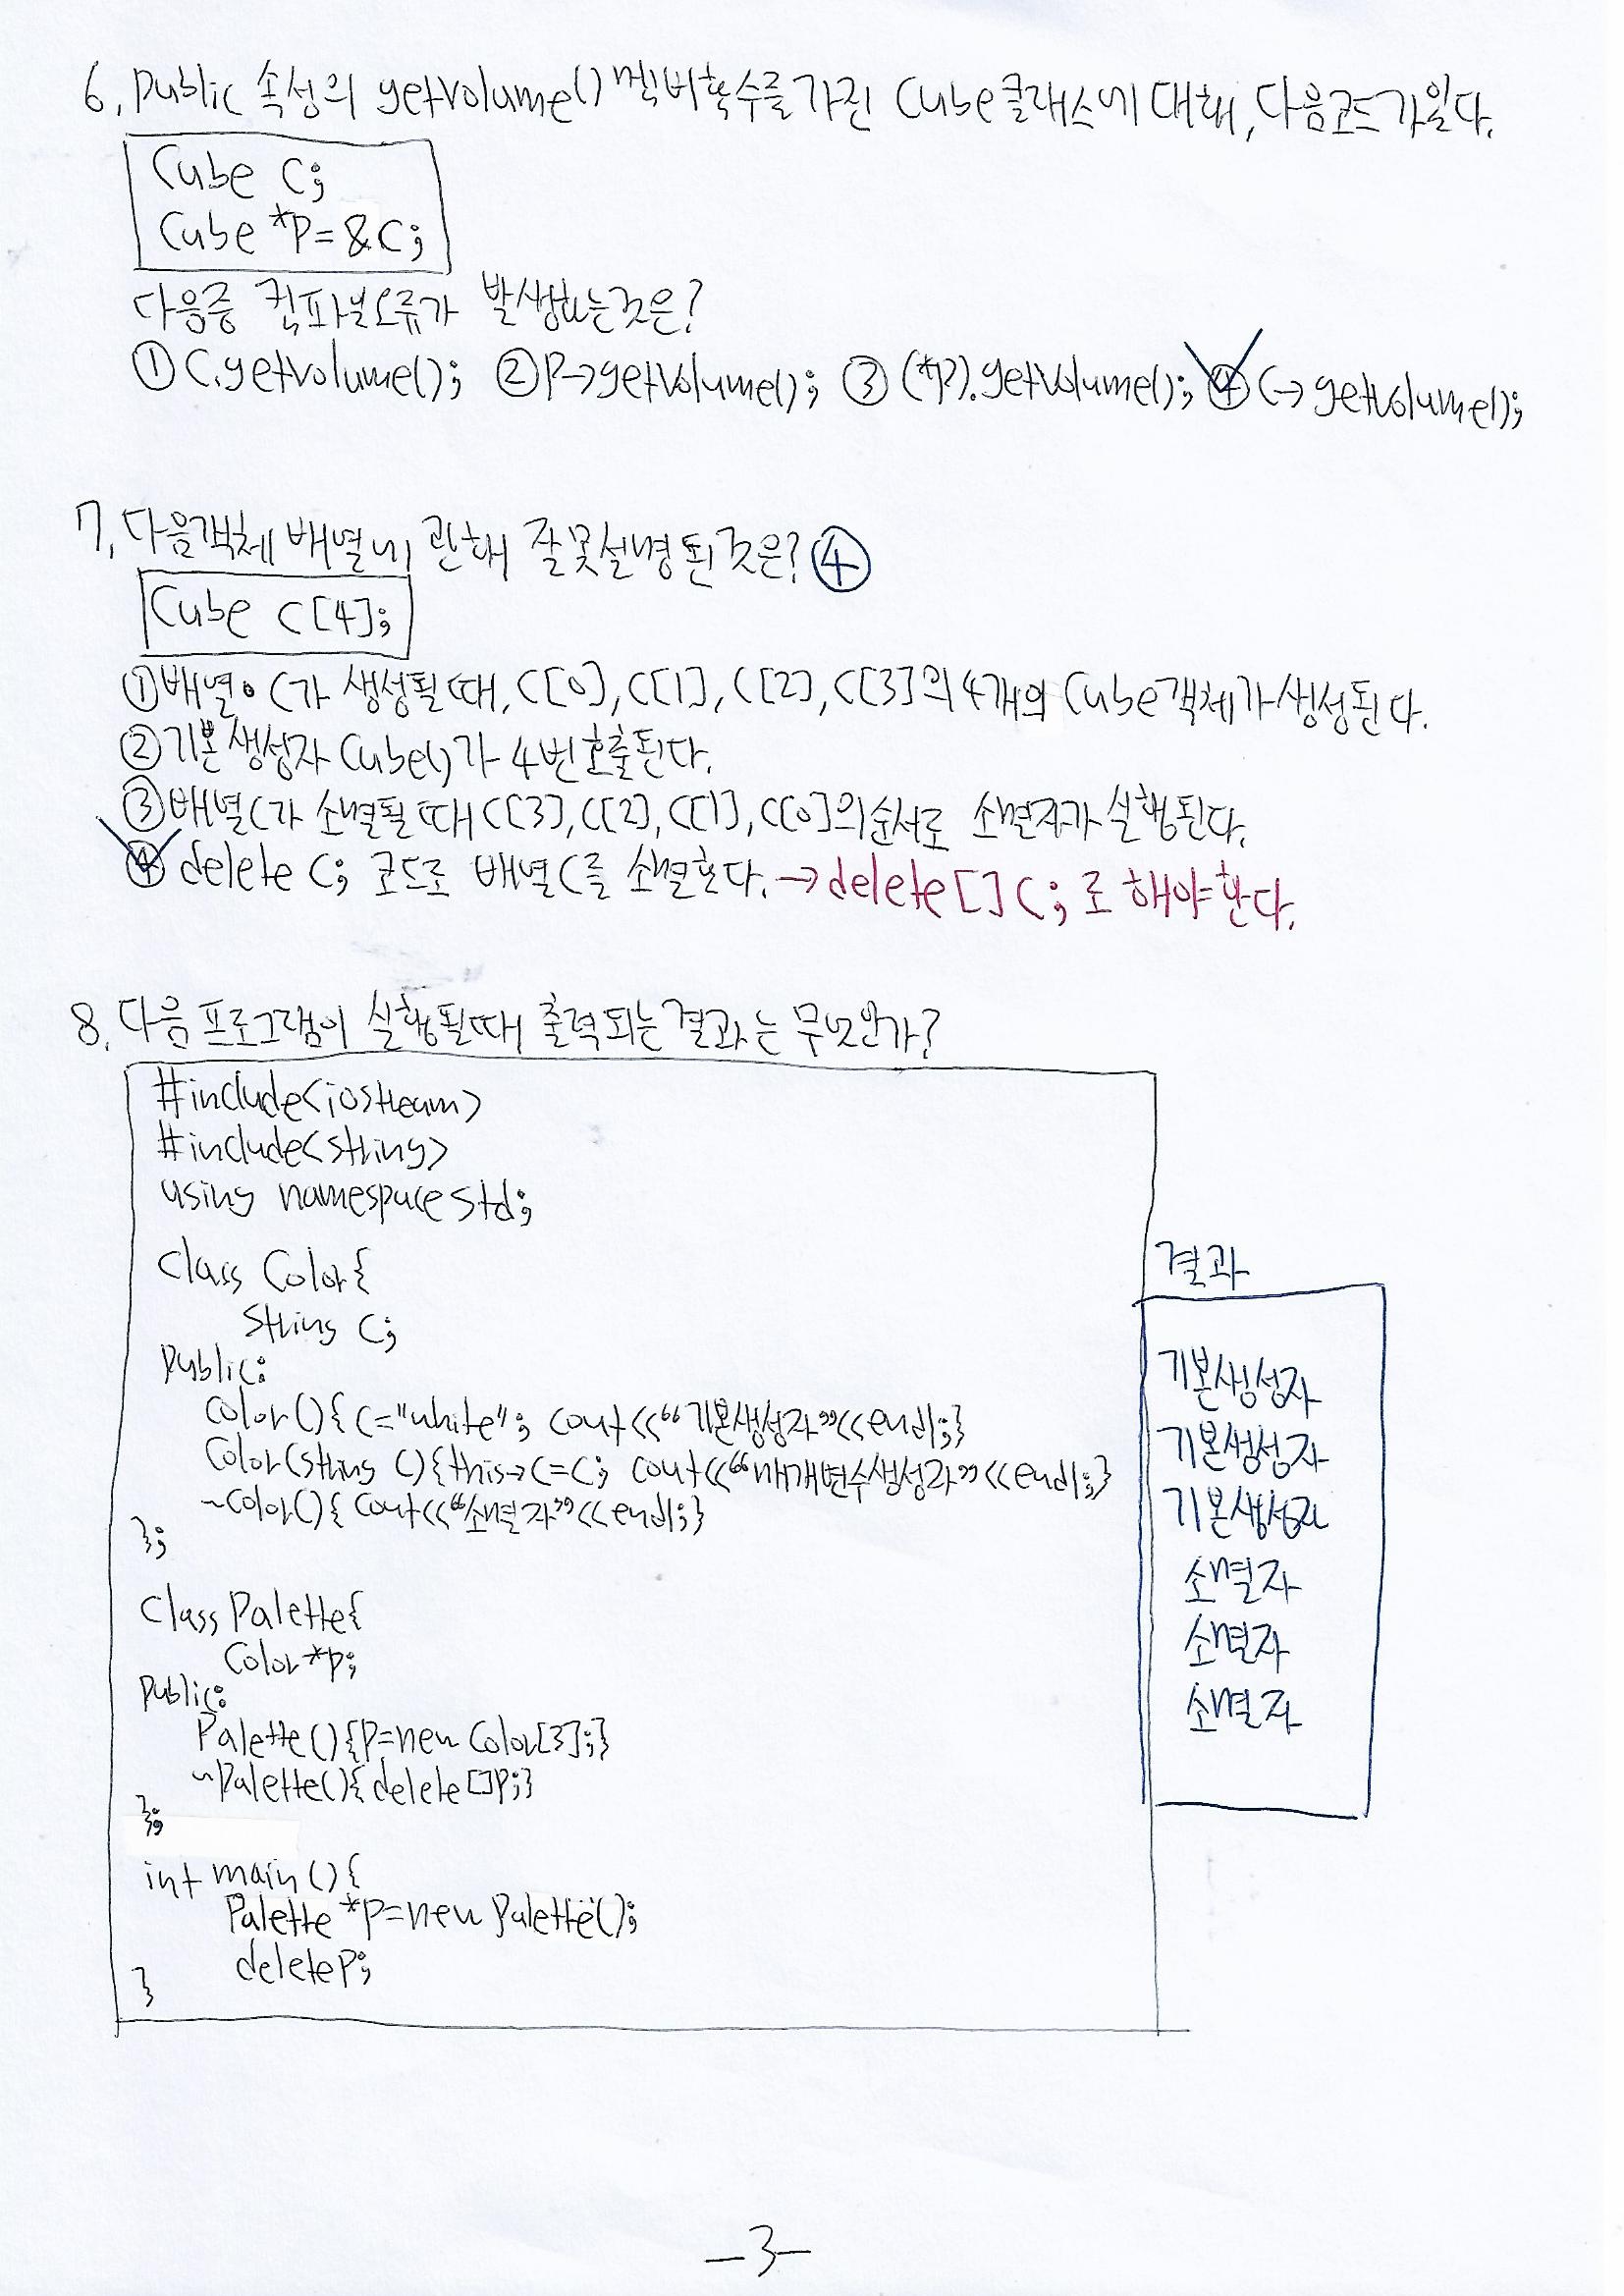 6. public 속성의 getVolume() 멤버함수를 가진 Cube클래스에 대해, 다음코드가있다.
Cube C;
Cube *P=&C;
다음중 컴파일오류가 발생하는것은?
① C.getVolume(); ② P→getVolume(); ③ (*P).getVolume(); ④ C→getVolume();
7. 다음객체 배열에 관해 잘못설명된것은? ④
Cube C[4];
①배열 C가 생성될때, C[0], C[1], C[2], C[3]의 4개의 Cube객체가생성된다.
②기본생성자 Cube()가 4번호출된다.
③배열C가 소멸될때 C[3], C[2], C[1], C[0]의순서로 소멸자가실행된다.
④ delete C; 코드로 배열C를 소멸한다. → delete[] C; 로 해야한다.
8. 다음 프로그램이 실행될때 출력되는결과는 무엇인가?
#include<iostream>
#include<string>
using namespace std;
class Color{
string C;
public:
Color(){C="white"; cout<<"기본생성자"<<endl;}
Color(string C){this→C=C; cout<<"매개변수생성자"<<endl;}
~Color(){cout<<"소멸자"<<endl;}
};
class Palette{
Color*p;
public:
Palette(){P=new Color[3];}
~Palette(){delete[]P;}
};
int main(){
Palette *P=new Palette();
delete P;
}
결과
기본생성자
기본생성자
기본생성자
소멸자
소멸자
소멸자
-3-